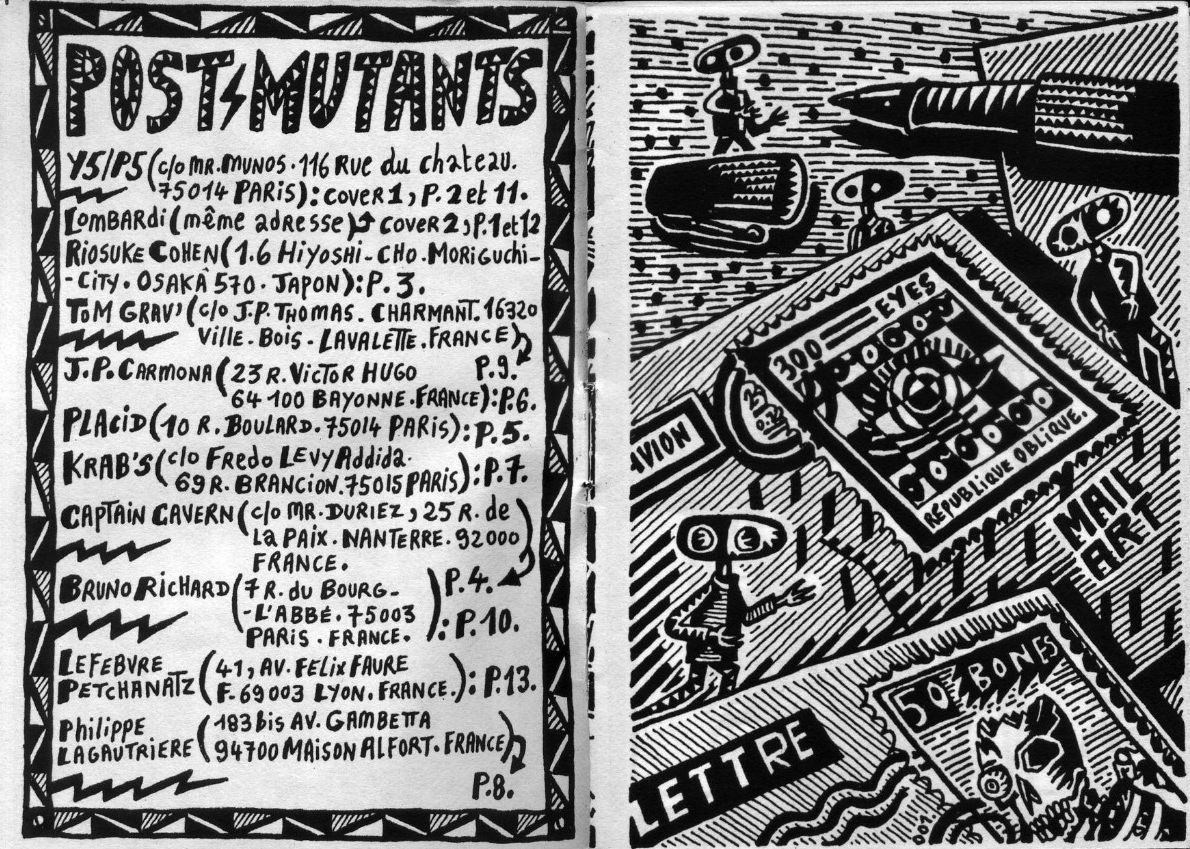 POST⚡MUTANTS
Y5/P5 (c/o MR. MUNOS. 116 Rue du chateau.
75014 PARIS): COVER 1, P. 2 et 11.
LOMBARDI (même adresse) COVER 2, P. 1 et 12
RIOSUKE COHEN (1.6 HIYOSHI-CHO. MORIGUCHI-
-CITY. OSAKÂ 570. JAPON): P. 3.
TOM GRAV' (c/o J.P. THOMAS. CHARMANT. 16320
VILLE. BOIS. LAVALETTE. FRANCE)
P.9.
J.P. CARMONA (23 R. VICTOR HUGO
64100 BAYONNE. FRANCE): P.6.
PLACID (10 R. BOULARD. 75014 PARIS): P.5.
KRAB'S (c/o FREDO LEVY Addida.
69 R. BRANCION. 75015 PARIS): P.7.
CAPTAIN CAVERN (c/o MR. DURIEZ, 25 R. de
La PAIX. NANTERRE. 92000
FRANCE.)
P.4.
BRUNO RICHARD (7 R. du BOURG-
-L'ABBÉ. 75003
PARIS. FRANCE.): P.10.
LEFEBVRE
PETCHANATZ (41, AV. FELIX FAURE
F. 69003 LYON. FRANCE.): P.13.
Philippe
LAGAUTRIERE (183 bis AV. GAMBETTA
94700 MAISON ALFORT. FRANCE)
P.8.
300 EYES
RÉPUBLIQUE OBLIQUE.
AVION
MAIL
ART
50 BONES
LETTRE